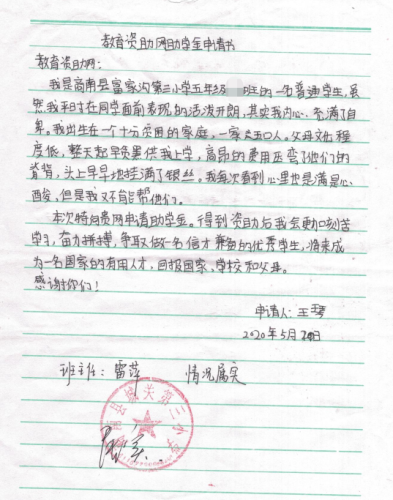 教育资助网助学金申请书
教育资助网:
我是商南县富家沟第三小学五年级 班的一名普通学生,虽
然我平时在同学面前表现的活泼开朗,其实我内心充满了自
卑。我出生在一个十分贫困的家庭,一家五口人。父母文化程
度低,整天起早贪黑供我上学,高昂的费用压弯了他们的
脊背,头上早早地挂满了银丝。我每次看到心里也是满是心
酸,但是我又不能帮他们。
本次特向贵网申请助学金。得到资助后我会更加刻苦
学习,奋力拼搏,争取做一名信才兼备的优秀学生,将来成
为一名国家的有用人才,回报国家、学校和父母。
感谢你们!
申请人:王琴
2020年5月 日
班主任:雷萍 情况属实
商县城关第三小学